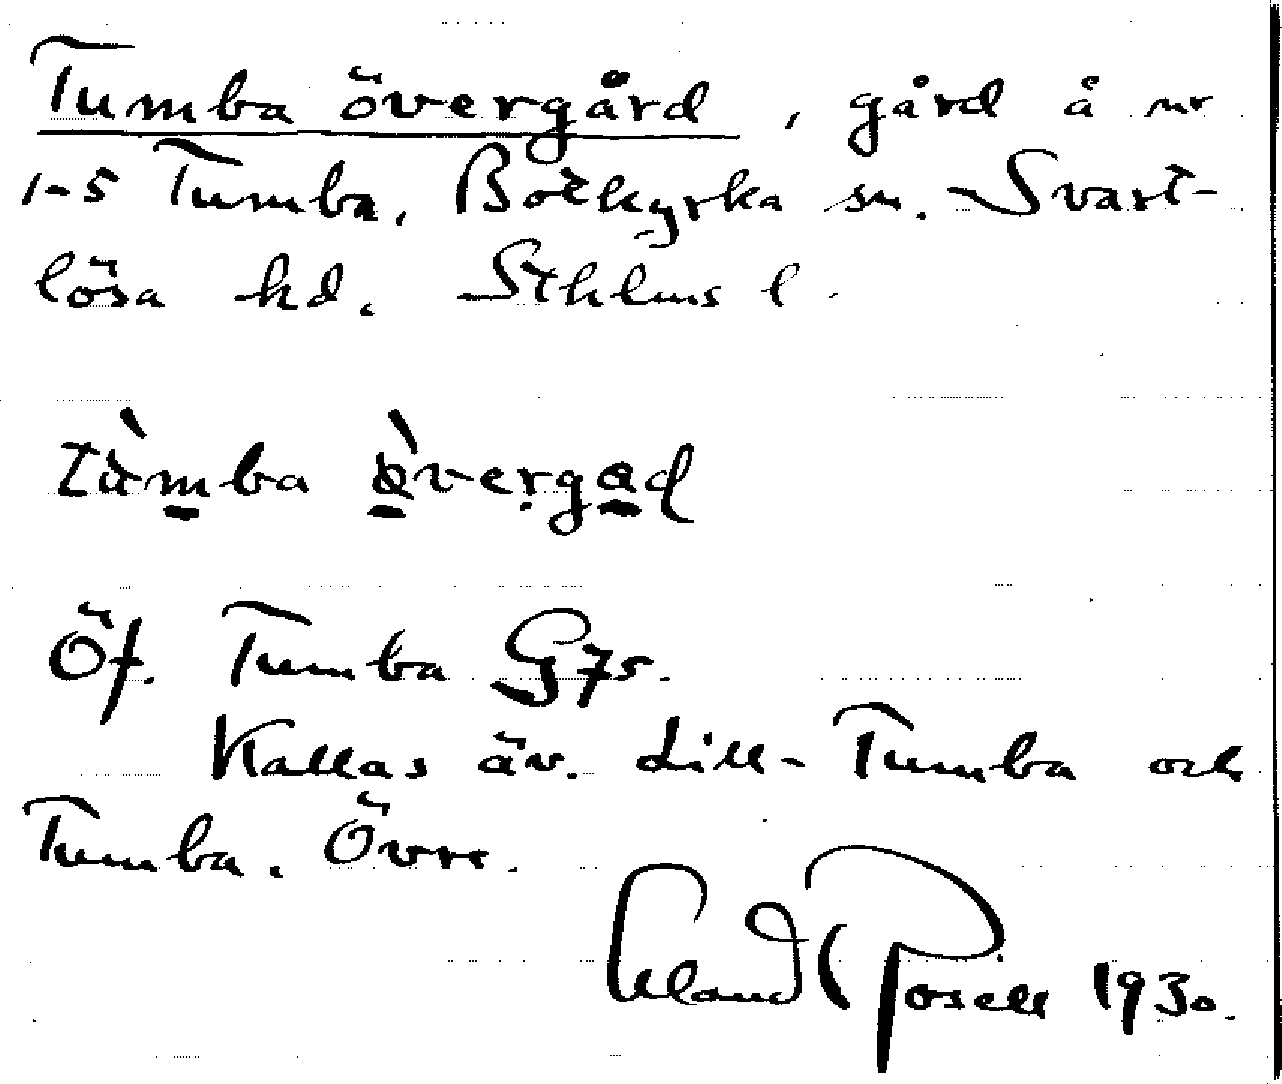 Tumba övergård, gård å nr
1-5 Tumba, Botkyrka sn. Svart-
lösa hd. Sthlms l.
tùmba ò̱vergad
Öf. Tumba G75.
Kallas äv. Lill-Tumba och
Tumba. Övre.
Erland Rosell 1930.